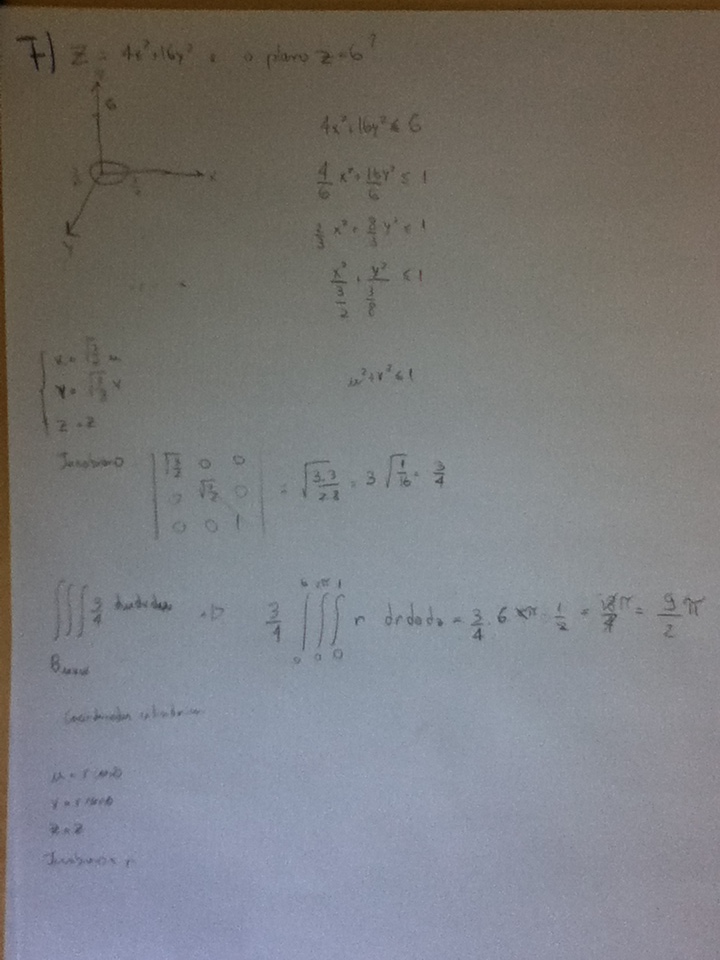 7) Z = 4x²+16y² e o plano z=6?
6
x
y
4x²+16y² ≤ 6
4/6 x² + 16/6 y² ≤ 1
2/3 x² + 8/3 y² ≤ 1
x²/(3/2) + y²/(3/8) ≤ 1
x = √(3/2) u
y = √(3/8) v
z = z
u²+v² ≤ 1
Jacobiano | √(3/2) 0 0 | 0 0 | 0 0 1 | = √(3.3/2.8) = 3 √(1/16) = 3/4
∭ 3/4 du dv dz => 3/4 ∫₀⁶ ∫₀^2π ∫₀¹ r dr do dz = 3/4 . 6 2π 1/2 = 18/4 π = 9/2 π
B
Coordenadas cilindricas
z = z
Jacobiano = r